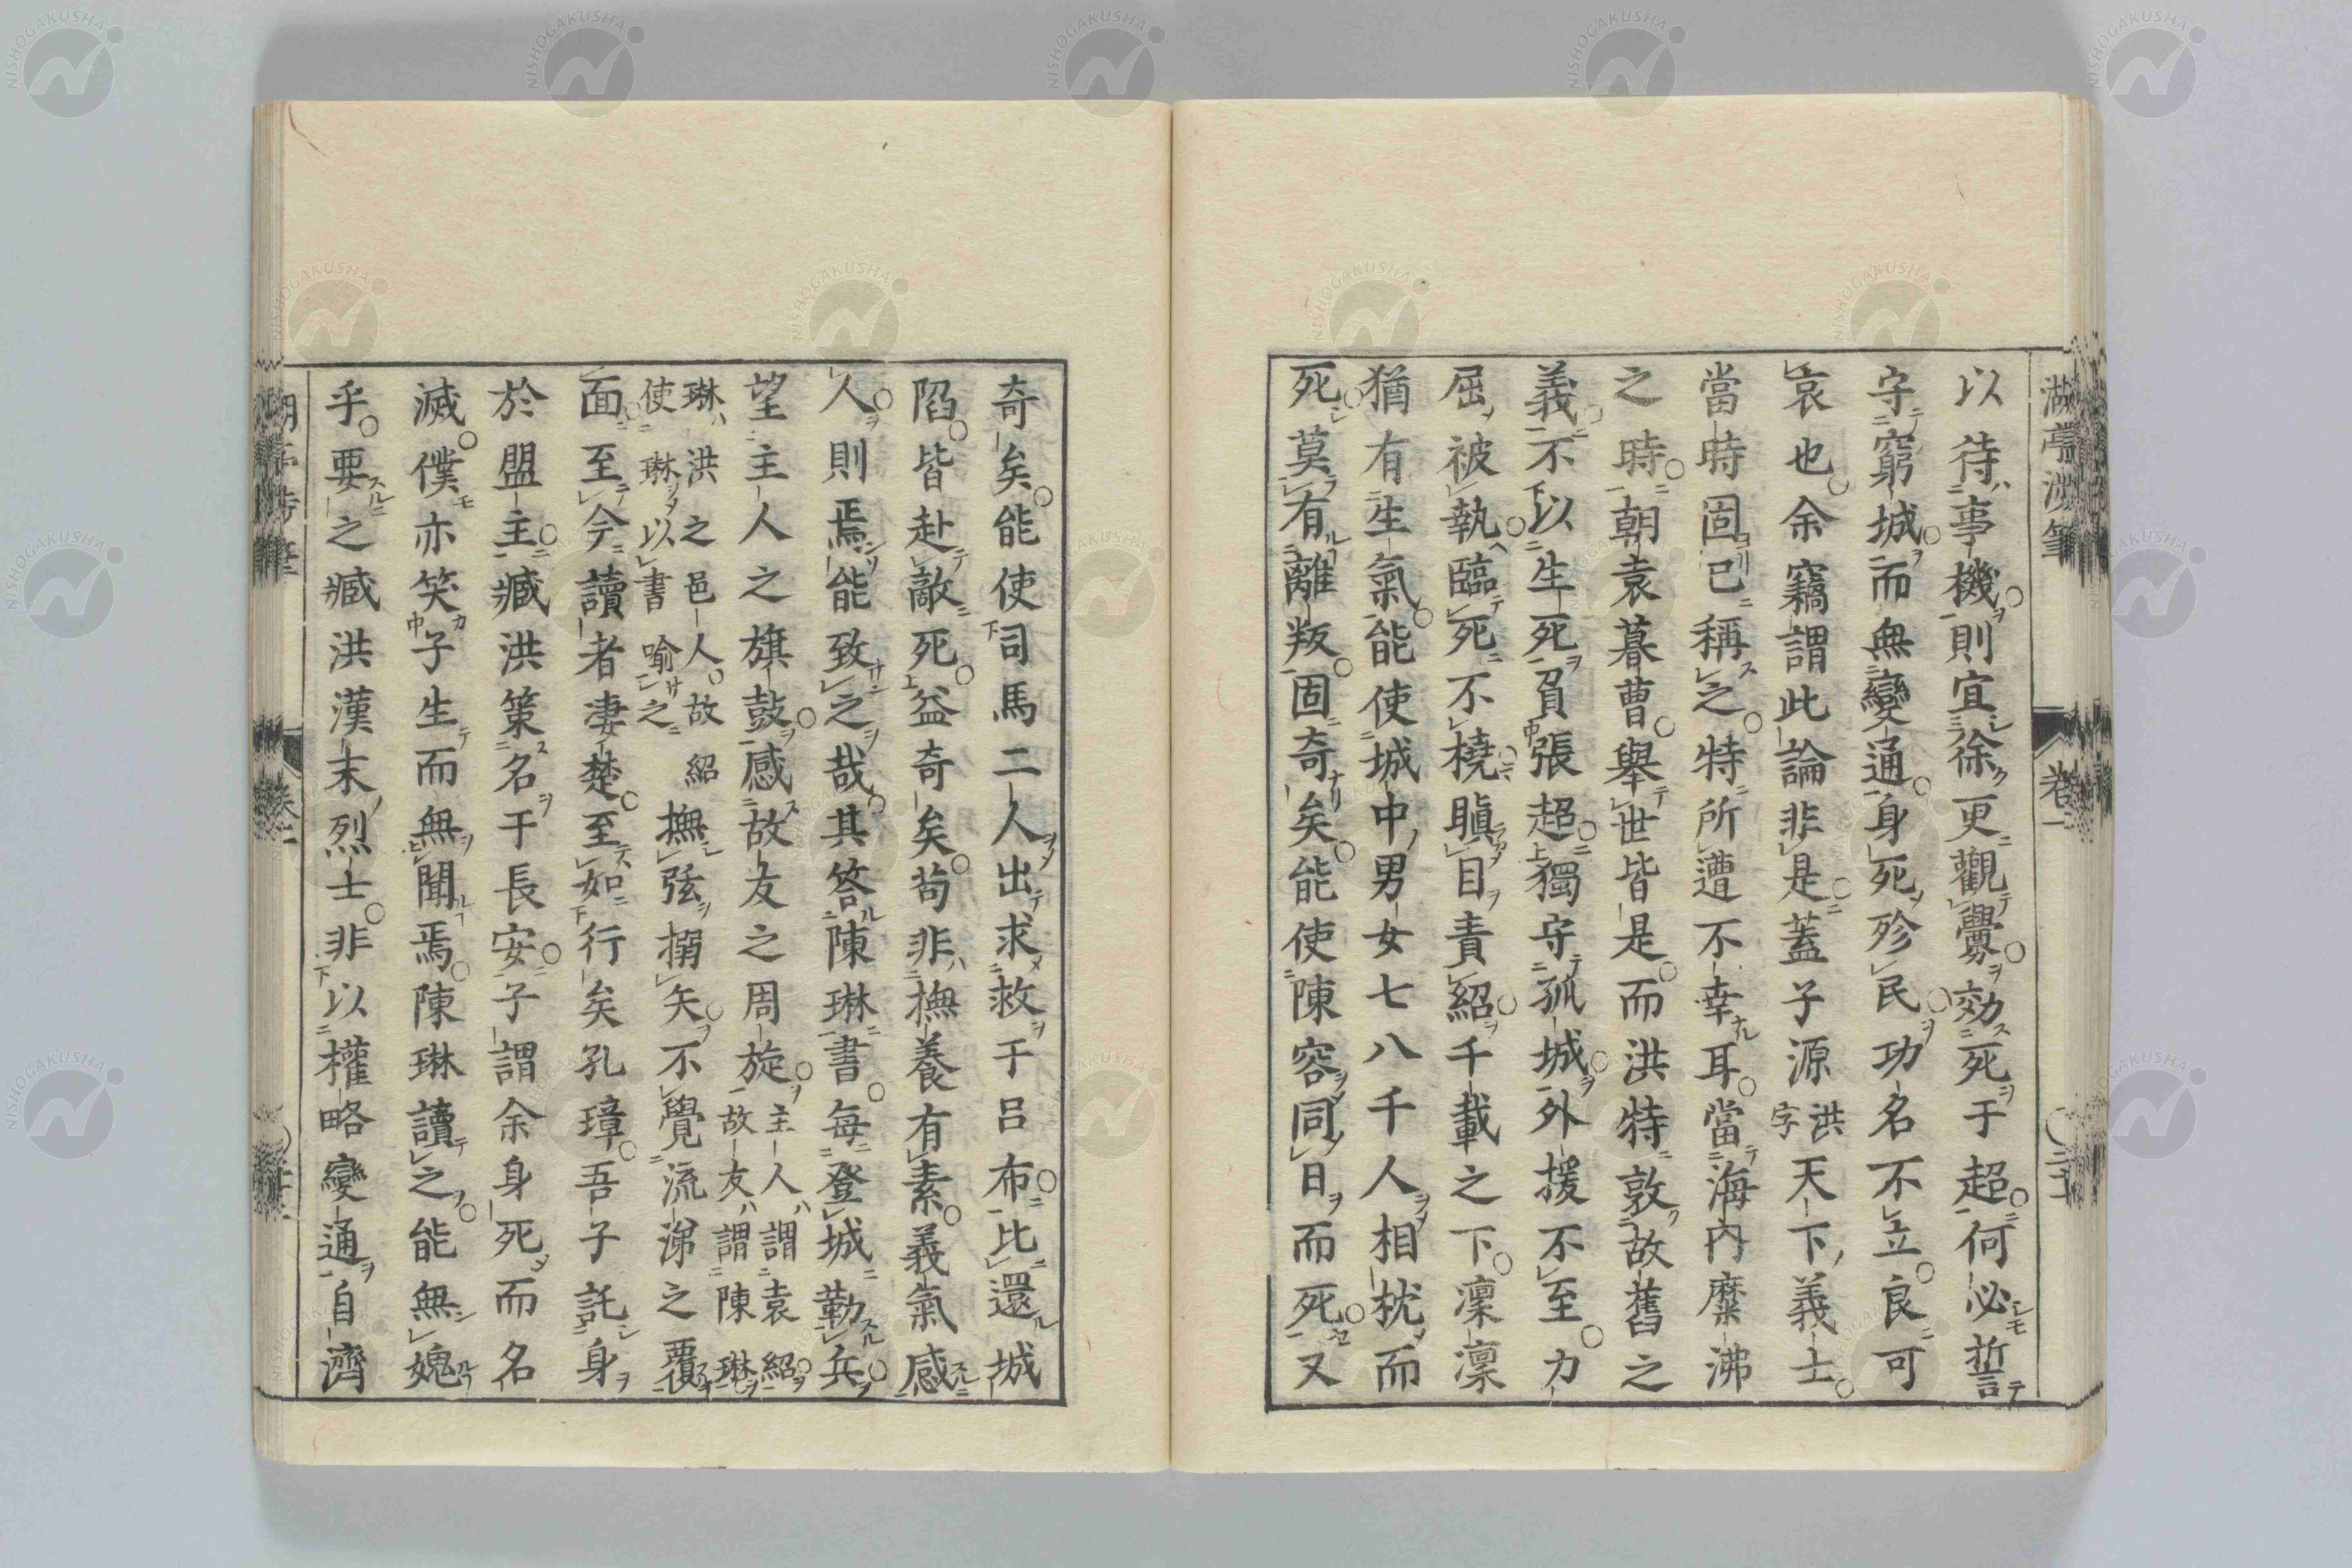 湖亭渉筆 卷一
以待事機則宜徐更觀釁効死于超何必誓
守窮城而無變通身死殄民功名不立良可
哀也余竊謂此論非是蓋子源洪字天下義士
當時固已稱之特所遭不幸耳當海內糜沸
之時朝袁暮曹舉世皆是而洪特敦故舊之
義不以生死負張超獨守孤城外援不至力
屈被執臨死不橈瞋目責紹千載之下凜凜
猶有生氣能使城中男女七八千人相枕而
死莫有離叛固奇矣能使陳容同日而死又
奇矣能使司馬二人出求救于呂布比還城
陷皆赴敵死益奇矣苟非撫養有素義氣感
人則焉能致之哉其答陳琳書每登城勒兵
望主人之旗鼓感故友之周旋主人謂袁紹故友謂陳琳
琳洪之邑人故紹使琳以書喻之撫弦搦矢不覺流涕之覆
面至今讀者淒楚至如行矣孔璋吾子託身
於盟主臧洪策名于長安子謂余身死而名
滅僕亦笑子生而無聞焉陳琳讀之能無媿
乎要之臧洪漢末烈士非以權略變通自濟